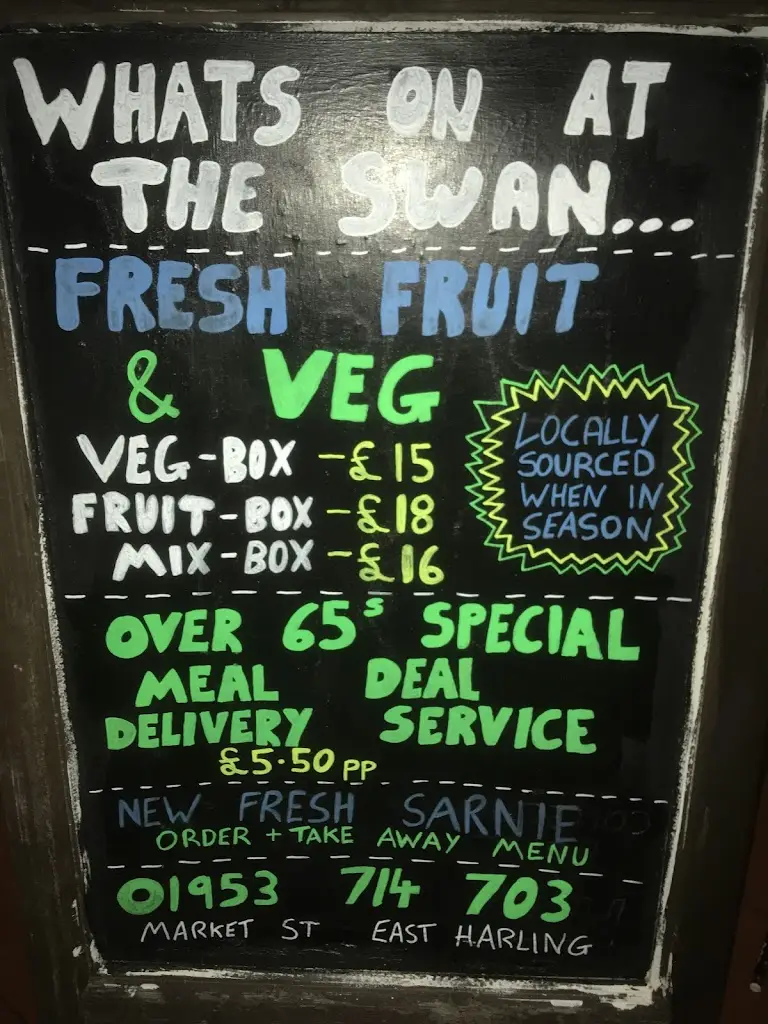 WHATS ON AT
THE SWAN...
FRESH FRUIT
& VEG
VEG-BOX -£15
FRUIT-BOX -£18
MIX-BOX -£16
LOCALLY
SOURCED
WHEN IN
SEASON
OVER 65s SPECIAL
MEAL DEAL
DELIVERY SERVICE
£5.50 PP
NEW FRESH SARNIE
ORDER + TAKE AWAY MENU
01953 714 703
MARKET ST EAST HARLING